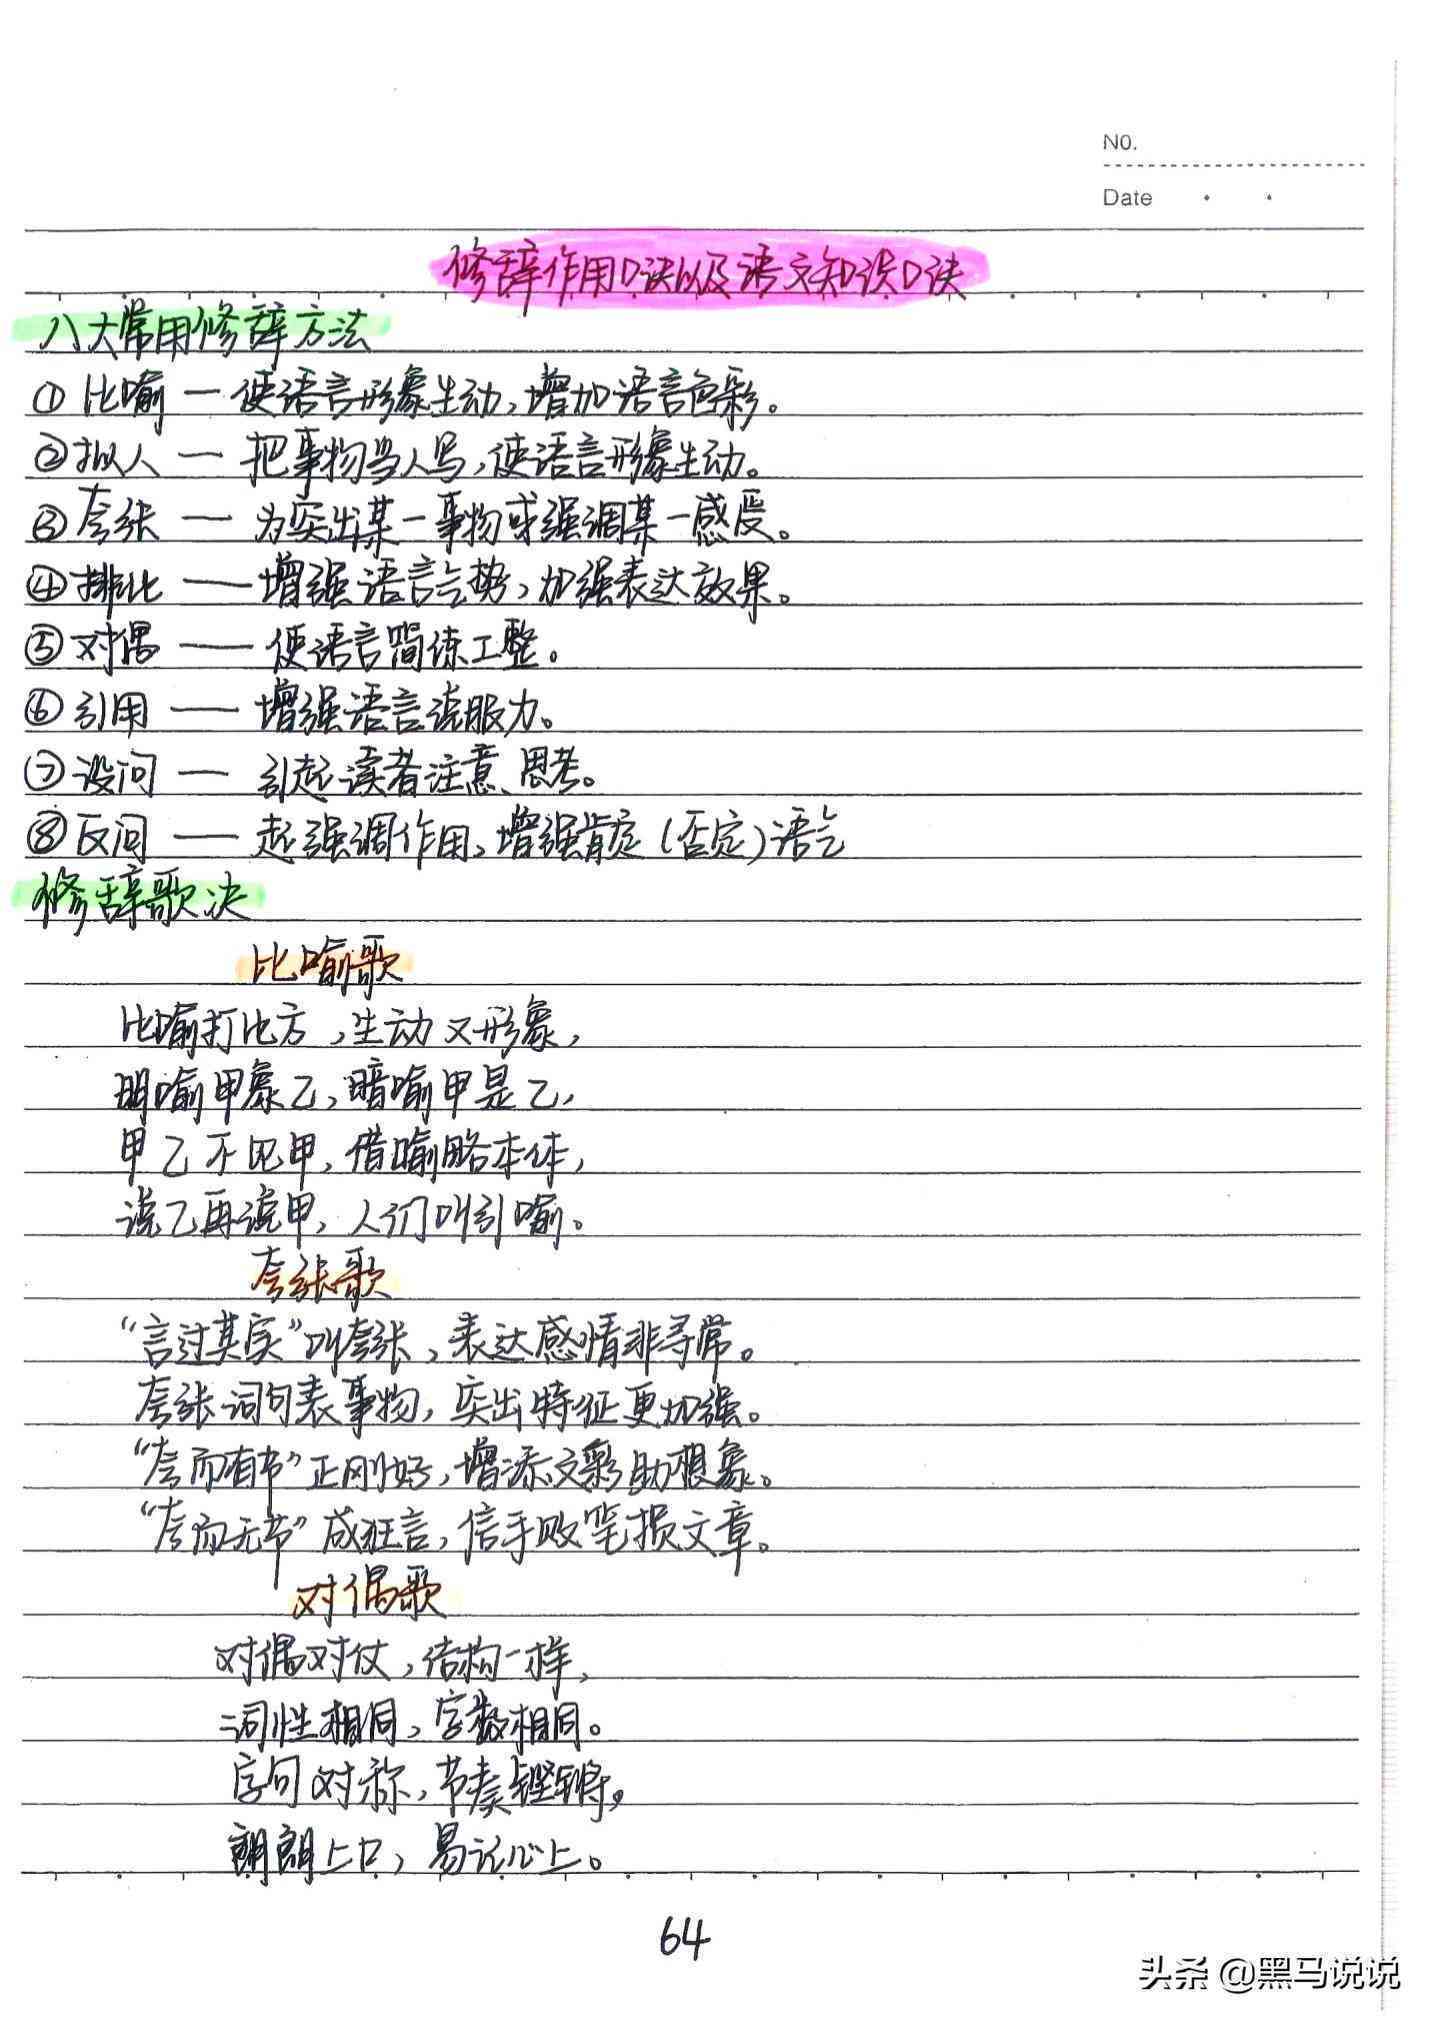 NO.
Date
修辞作用口诀以及语文知识口诀
八大常用修辞方法
①比喻一使语言形象生动,增加语言色彩。
②拟人一把事物当人写,使语言形象生动。
③夸张一为突出某一事物或强调某一感受。
④排比——增强语言气势,加强表达效果。
⑤对偶——使语言简练工整。
⑥引用——增强语言说服力。
⑦设问——引起读者注意、思考。
⑧反问——起强调作用,增强肯定(否定)语气
修辞歌决
比喻歌
比喻打比方,生动又形象,
明喻甲象乙,暗喻甲是乙,
甲乙不见甲,借喻略本体,
说乙再说甲,人们叫引喻。
夸张歌
“言过其实”叫夸张,表达感情非寻常。
夸张词句表事物,突出特征更加强。
“夸而有节”正刚好,增添文彩助想象。
“夸而无节”成狂言,信手败笔损文章。
对偶歌
对偶对仗,结构一样,
词性相同,字数相同。
字句对称,节奏铿锵,
朗朗上口,易记心上。
64
头条 @黑马说说